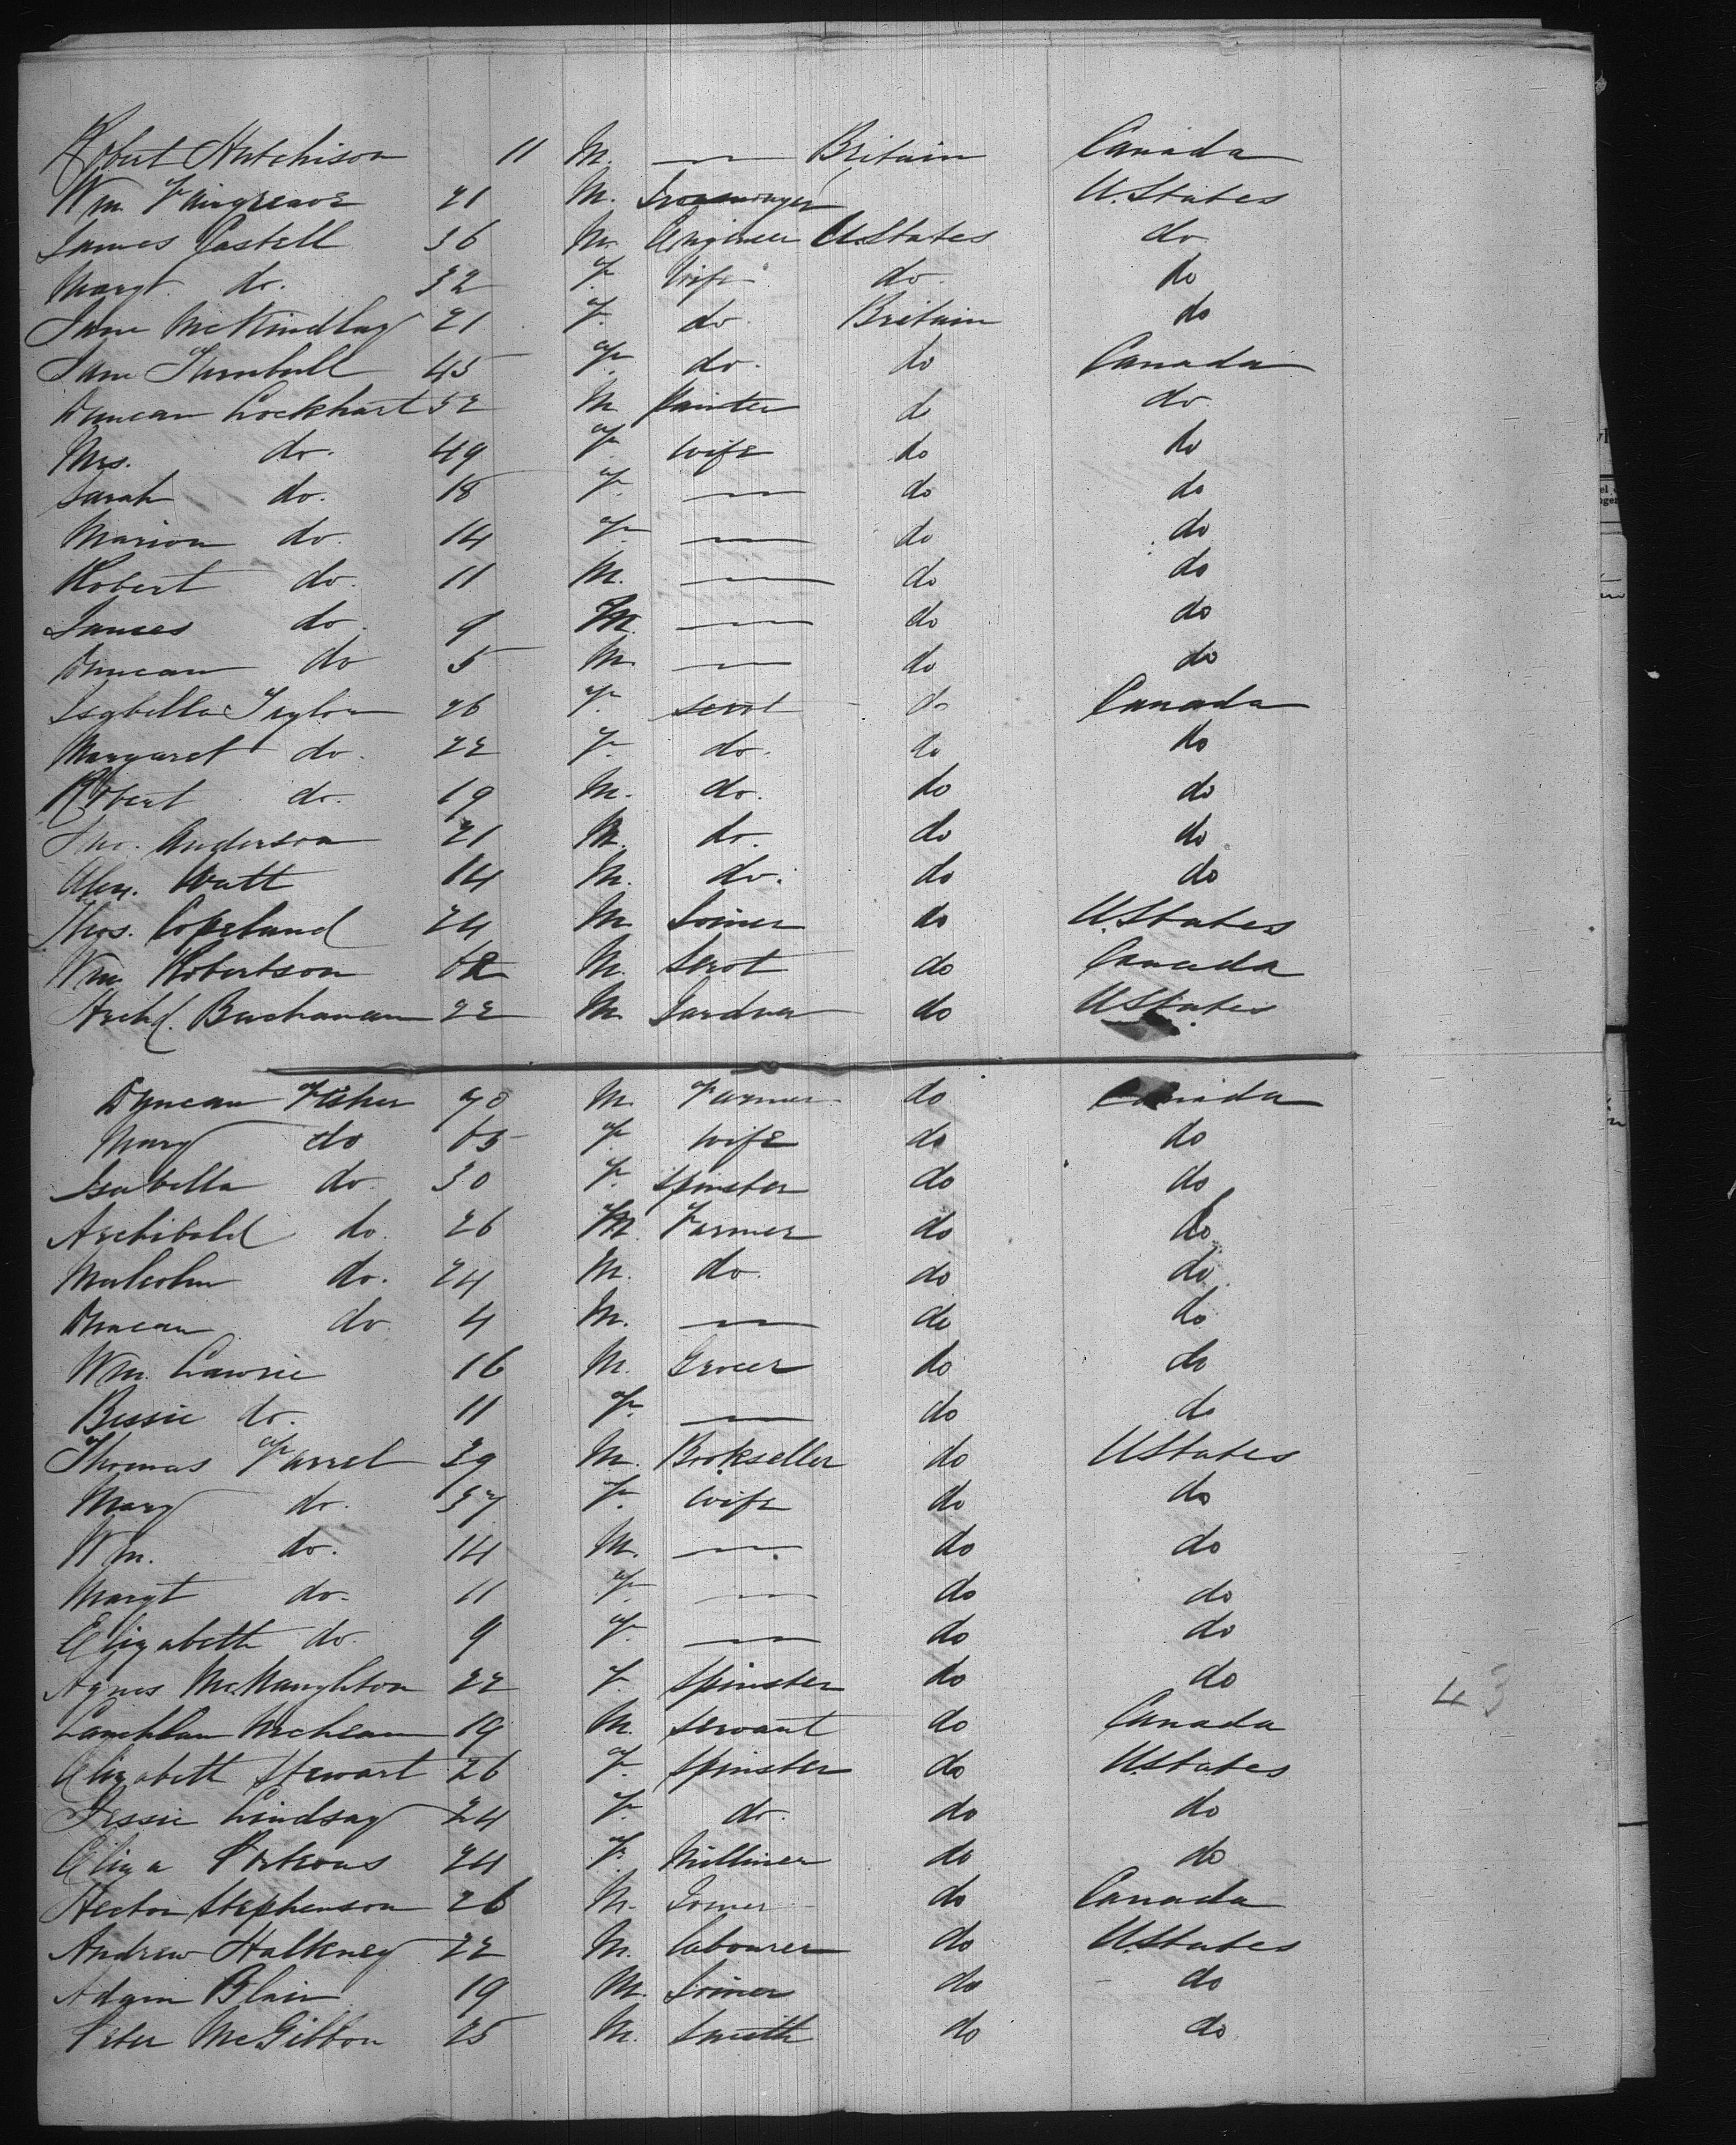 Robert Hutchison 11 M. — Britain Canada
Wm Faingreave 21 M. Ironmonger U.States
James Castell 36 M. Engineer U.States do
Margt do. 32 F. Wife do. do
Jane McKindlay 21 F. do. Britain do
Jane Turnbull 45 F. do. do Canada
Duncan Lockhart 52 M Painter do do
Mrs. do. 49 F. wife do do
Sarah do. 18 F. — do do
Marion do. 14 F. — do do
Robert do. 11 M. — do do
James do. 9 M. — do do
Duncan do 5 M. — do do
Isabella Taylor 26 F. servt do Canada
Margaret do. 22 F. do. do do
Robert do. 19 M. do. do do
Jno. Anderson 21 M. do. do do
Alex. Watt 14 M. do. do do
Thos. Copeland 24 M. Joiner do U.States
Wm. Robertson M. Servt do Canada
Archd. Buchanan 22 M. Gardner do UStates
Duncan Fisher 70 M. Farmer do Canada
Mary do 65 F. wife do do
Isabella do. 30 F. spinster do do
Archibald do. 26 M. Farmer do do
Malcolm do. 24 M. do. do do
Duncan do 4 M. — do do
Wm. Lawrie 16 M. Grocer do do
Bessie do. 11 F. — do do
Thomas Farrel 39 M. Bookseller do UStates
Mary do. 37 F. wife do do
Wm. do. 14 M. — do do
Margt do. 11 F. — do do
Elizabeth do. 9 F. — do do
Agnes McNaughton 22 F. Spinster do do
Lauchlan McLean 19 M. Servant do Canada
Elizabeth Stewart 26 F. Spinster do U.States
Jessie Lindsay 24 F. do. do do
Eliza Porteous 24 F. Milliner do do
Hector Stephenson 26 M. Joiner do Canada
Andrew Halkney 22 M. labourer do U.States
Adam Blair 19 M. Joiner do do
Peter McGibbon 25 M. Smith do do
43